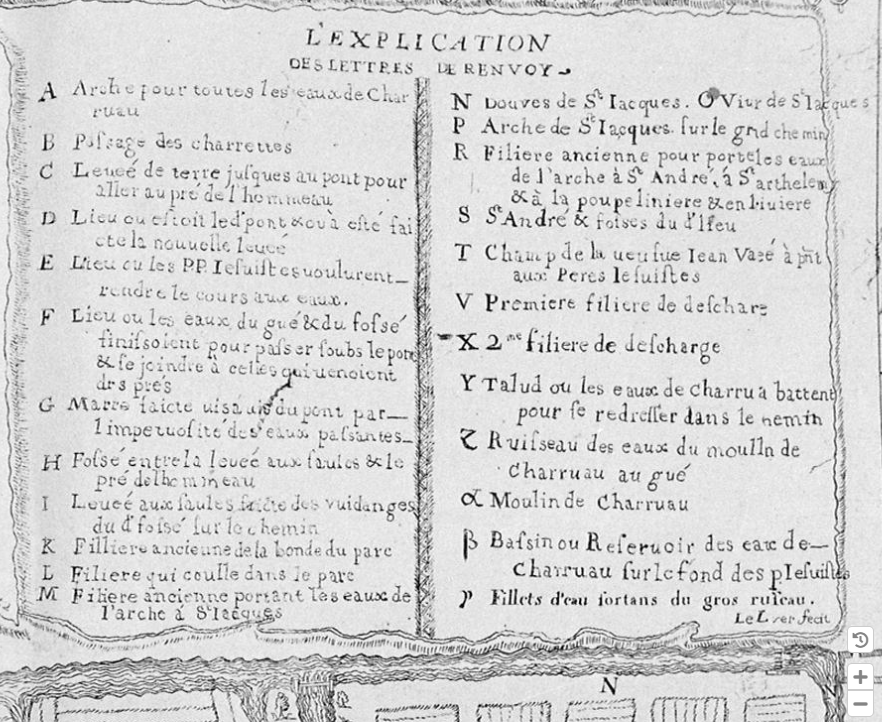 L'EXPLICATION
DES LETTRES DE RENVOY
A Arche pour toutes les eaux de Char
ruau
B Passage des charrettes
C Leueé de terre jusques au pont pour
aller au pré de l'hommeau
D Lieu ou estoit led. pont & ou à esté fai
cte la nouuelle leueé
E Lieu ou les PP. Iesuistes uoulurent
rendre le cours aux eaux.
F Lieu ou les eaux du gué & du fossé
finissoient pour passer soubs le pont
& se joindre à celles qui uenoient
des prés
G Marre faicte uis à uis du pont par
l'impetuosité des eaux passantes
H Fossé entre la leueé aux saules & le
pré de lhommeau
I Leueé aux saules faicte des vuidanges
du d' fossé sur le chemin
K Filliere ancienne de la bonde du parc
L Filiere qui coulle dans le parc
M Filiere ancienne portant les eaux de
l'arche à St Iacques
N Douves de St Iacques. O Viur de St Iacques
P Arche de St Iacques sur le grnd chemin
R Filiere ancienne pour porte les eaux
de l'arche à St André, à St arthelemy
& à la poupeliniere & en l'iuiere
S St André & fosses du d' lieu
T Champ de la ueufue Iean Vazé à pñt
aux Peres Iesuistes
V Premiere filiere de descharge
X 2me filiere de descharge
Y Talud ou les eaux de Charrua battent
pour se redresser dans le hemin
Z Ruisseau des eaux du moulln de
Charruau au gué
α Moulin de Charruau
β Bassin ou Reseruoir des eax de
Charruau sur le fond des p Iesuistes
γ Fillets d'eau sortans du gros ruseau.
Le fecit
N